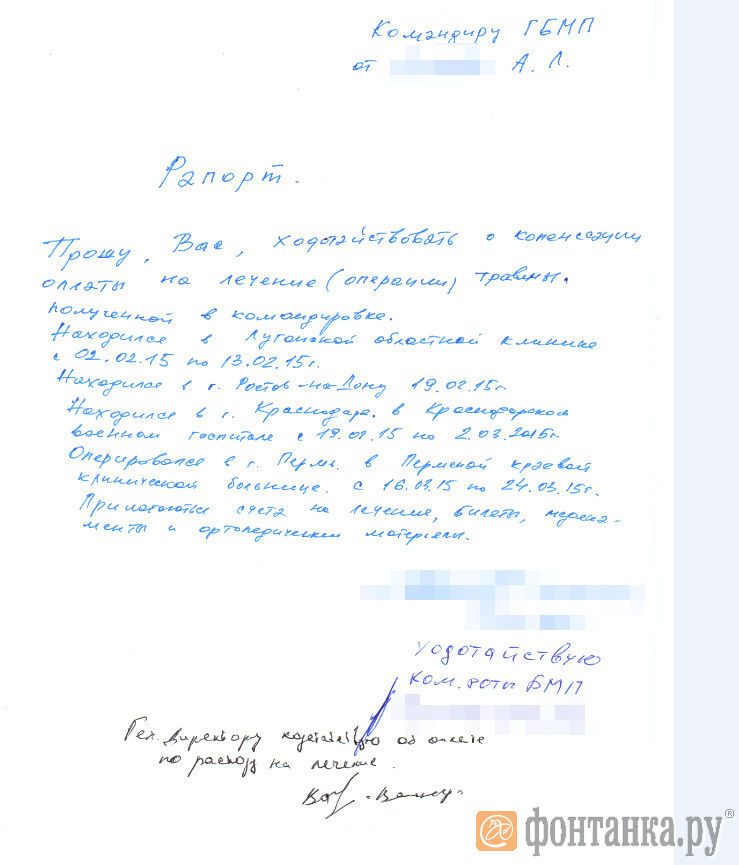 Командиру ГБМП
от А. Л.
Рапорт.
Прошу, Вас, ходотайствовать о компенсации
оплаты на лечение (операции) травмы.
полученной в командировке.
Находился в Луганской областной клинике
с 02.02.15 по 13.02.15г.
Находился в г. Ростов-на-Дону 19.02.15г
Находился в г. Краснодара. в Краснодарском
военном госпитале с 19.02.15 по 2.03.2015г.
Оперировался в г. Пермь. в Пермской краевой
клинической больнице. с 16.03.15 по 24.03.15г.
Прилагаются счета на лечения, билеты, медика-
менты и ортопедически материалы.
Ходотайствую
Ком. роты БМП
Ген. Директору ходатайствую об оплате
по расходу на лечение.
фонтанка.ру®